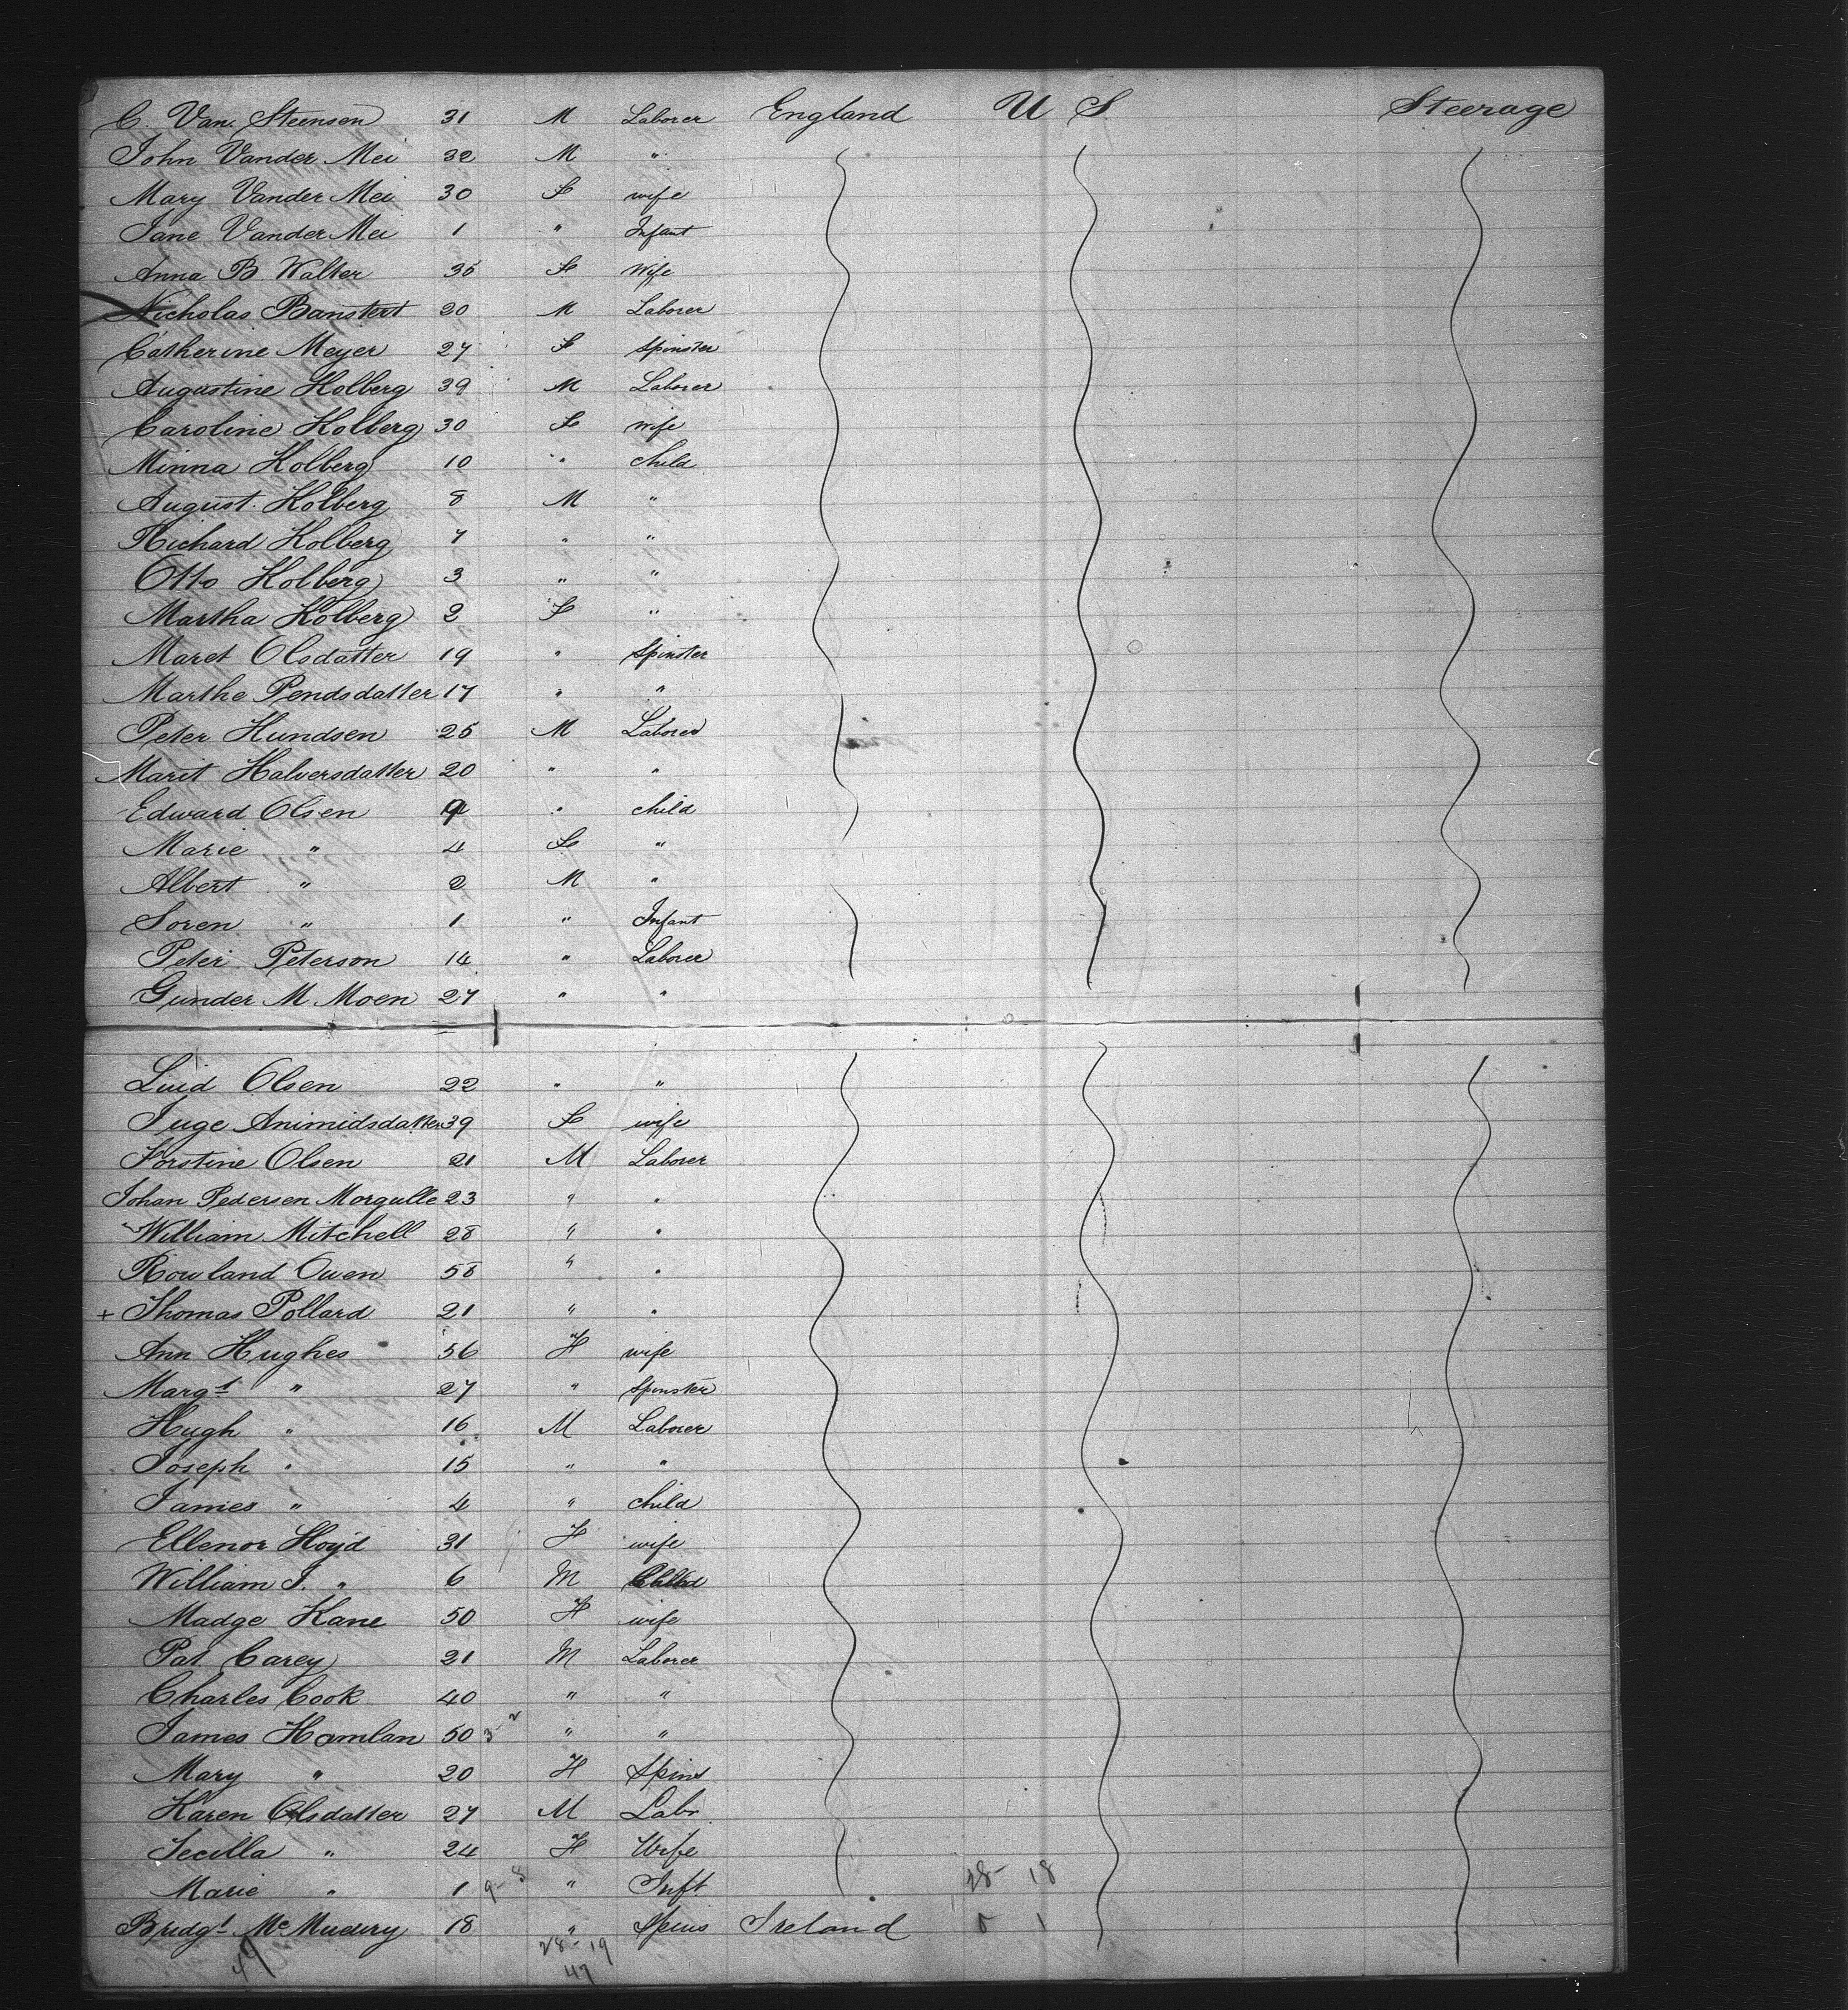 C. Van. Steenson 31 M Laborer England U S. Steerage
John Vander Mei 32 M "
Mary Vander Mei 30 F wife
Jane Vander Mei 1 " Infant
Anna B. Walter 35 F Wife
Nicholas Banstert 20 M Laborer
Catherine Meyer 27 F Spinster
Augustine Holberg 39 M Laborer
Caroline Holberg 30 F wife
Minna Holberg 10 " child
August. Holberg 8 M "
Richard Holberg 7 " "
Otto Holberg 3 " "
Martha Holberg 2 F "
Maret Olsdatter 19 " Spinster
Marthe Pendsdatter 17 " "
Peter Hundsen 25 M Laborer
Marit Halversdatter 20 " "
Edward Olsen 9 " child
Marie " 4 F "
Albert " 2 M "
Soren " 1 " Infant
Peter Peterson 14 " Laborer
Gunder M. Moen 27 " "
Luid Olsen 22 " "
Juge Animidsdatter 39 F wife
Forstine Olsen 21 M Laborer
Johan Pedersen Morgulle 23 " "
William Mitchell 28 " "
Rowland Owen 58 " "
+ Thomas Pollard 21 " "
Ann Hughes 56 F wife
Margt " 27 " Spinster
Hugh " 16 M Laborer
Joseph " 15 " "
James " 4 " child
Ellenor Lloyd 31 F wife
William J. " 6 M Child
Madge Kane 50 F wife
Pat Carey 21 M Laborer
Charles Cook 40 " "
James Hamlan 50 3-2 " "
Mary " 20 F Spins
Karen Olsdatter 27 M Labr
Secilla " 24 F Wife
Marie " 1 9-8 " Inft 28- 18
Bridgt Mc 18 " Spins Ireland 0 1
28-19
47 47